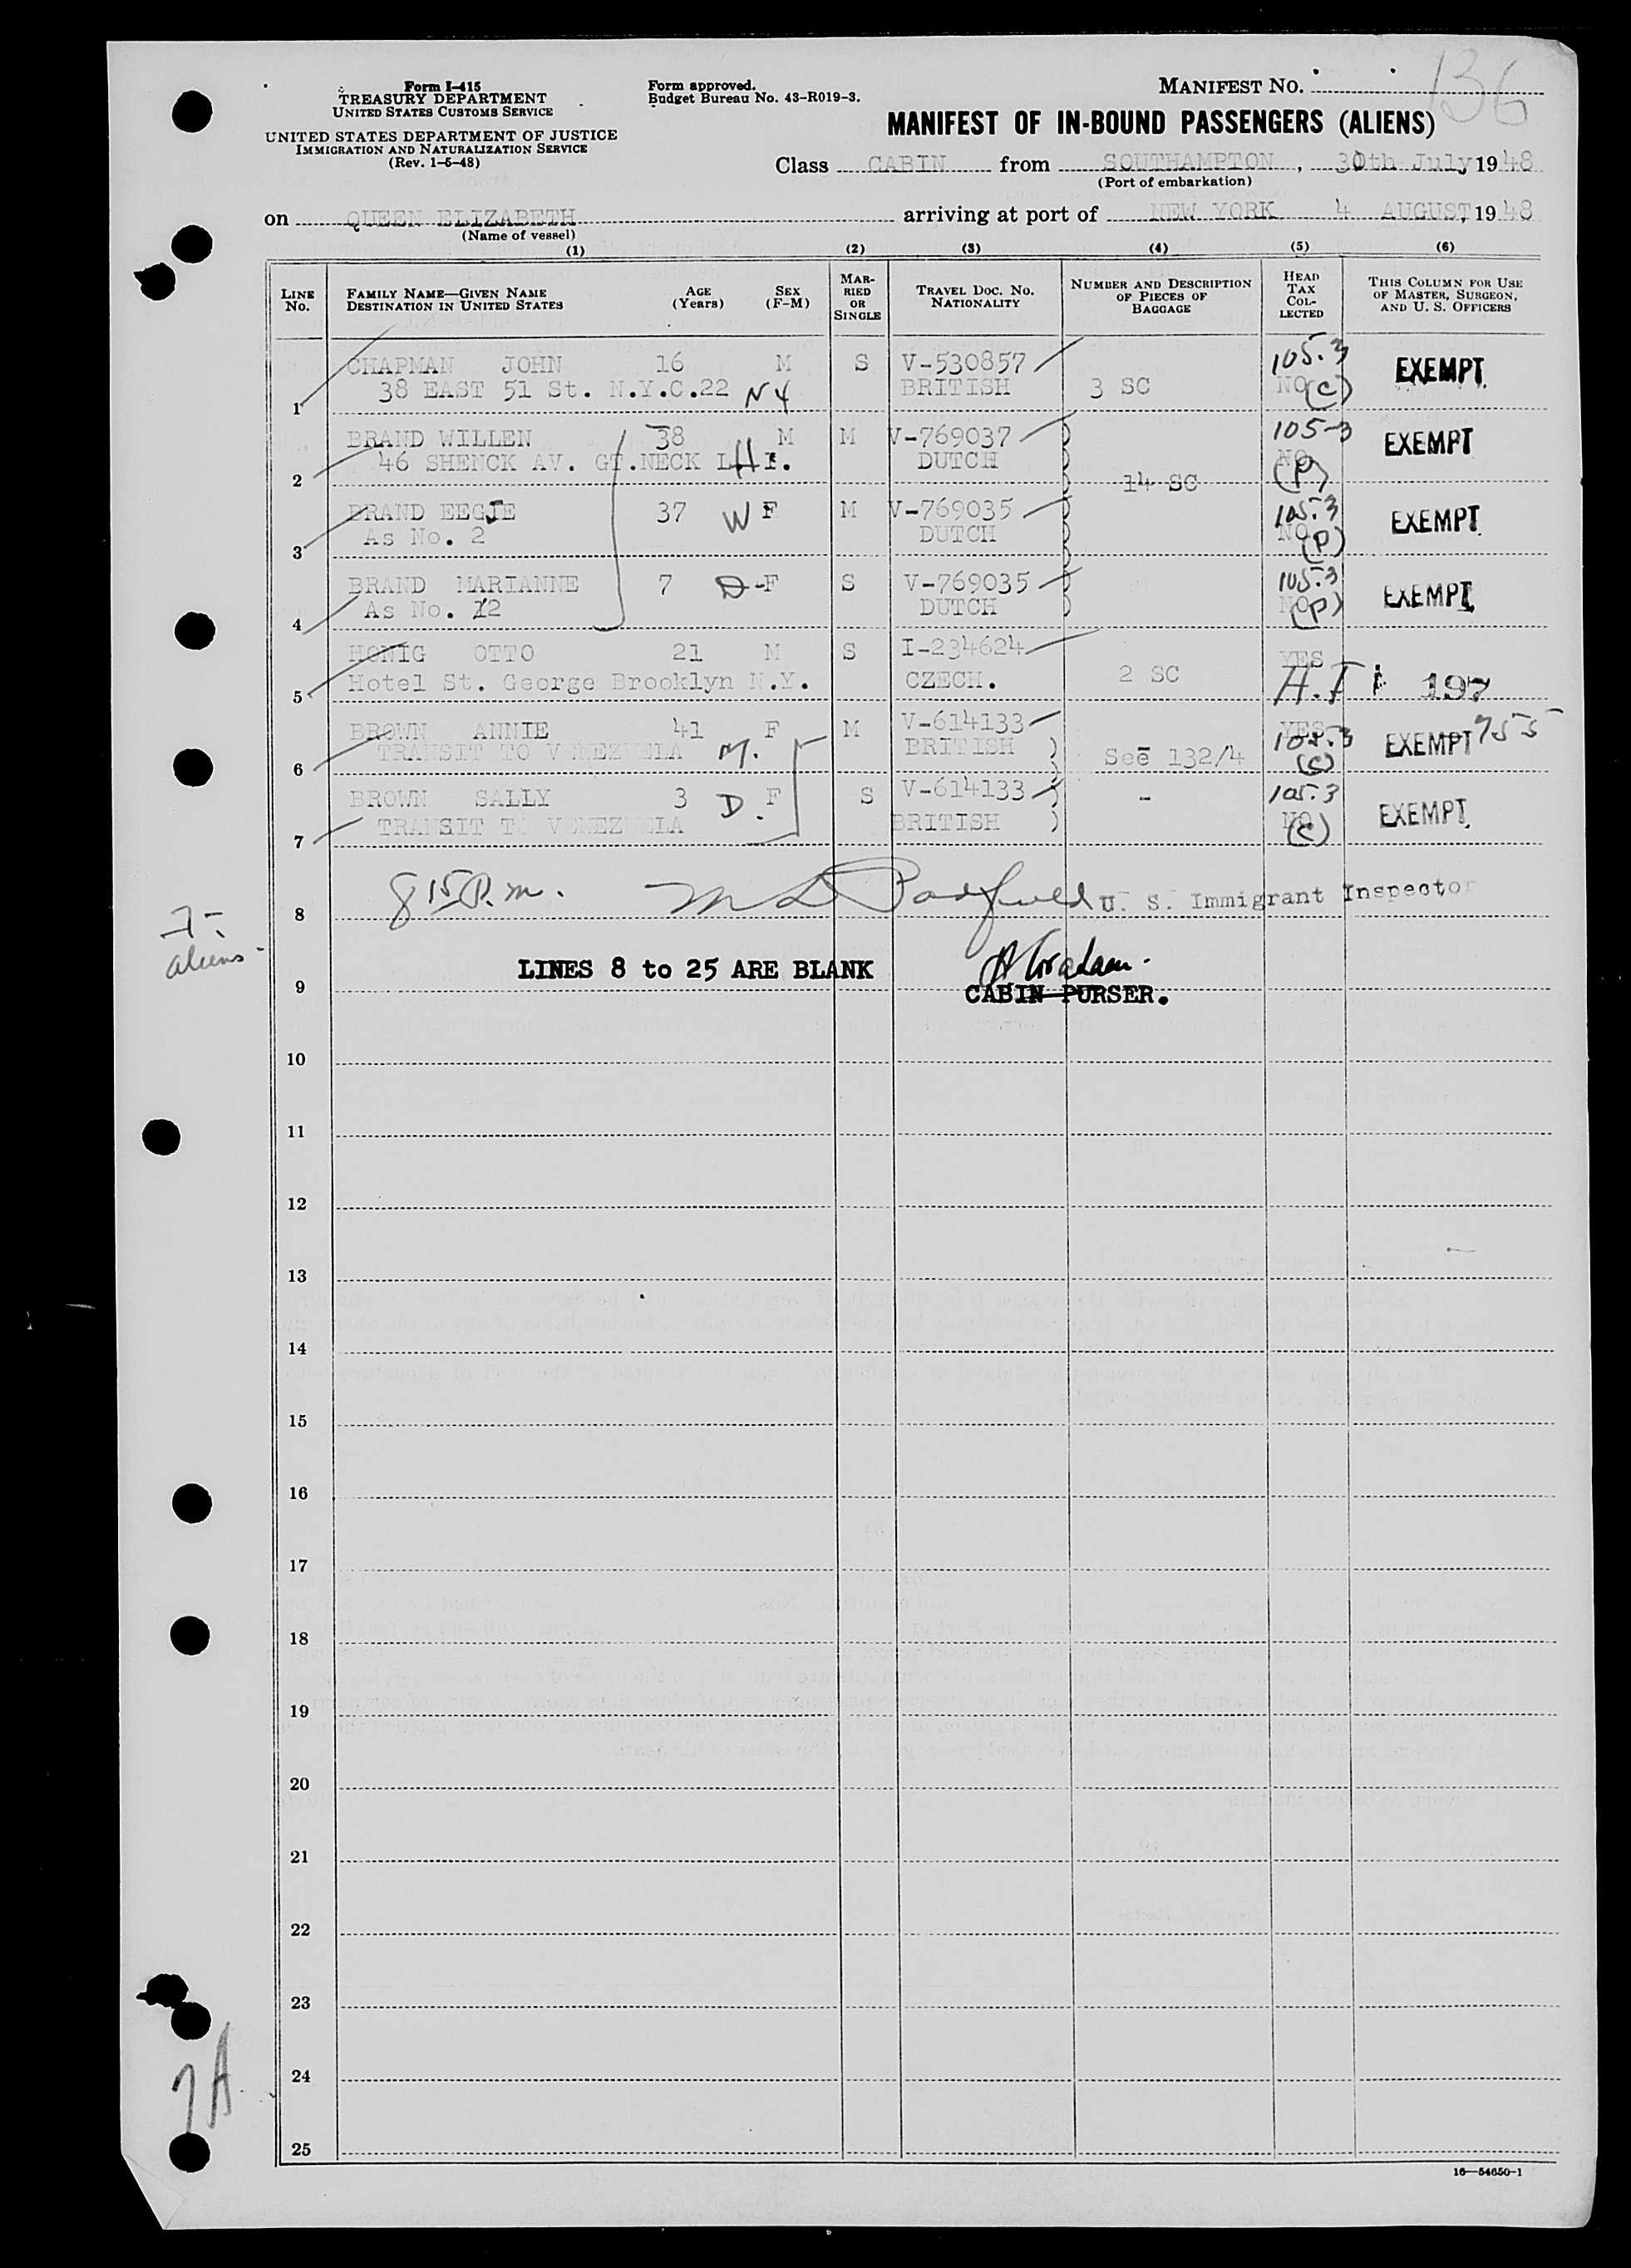 Form I-415
TREASURY DEPARTMENT
UNITED STATES CUSTOMS SERVICE
UNITED STATES DEPARTMENT OF JUSTICE
IMMIGRATION AND NATURALIZATION SERVICE
(Rev. 1-6-48)
Form approved.
Budget Bureau No. 43-R019-3.
MANIFEST NO. 136
MANIFEST OF IN-BOUND PASSENGERS (ALIENS)
Class CABIN from SOUTHAMPTON, 30th July, 1948
(Port of embarkation)
on QUEEN ELIZABETH arriving at port of NEW YORK 4 AUGUST, 1948
(Name of vessel)
(1) (2) (3) (4) (5) (6)
LINE No. FAMILY NAME—GIVEN NAME DESTINATION IN UNITED STATES AGE (Years) SEX (F-M) MARRIED OR SINGLE TRAVEL DOC. NO. NATIONALITY NUMBER AND DESCRIPTION OF PIECES OF BAGGAGE HEAD TAX COLLECTED THIS COLUMN FOR USE OF MASTER, SURGEON, AND U. S. OFFICERS
CHAPMAN JOHN 16 M S V-530857 105.3 EXEMPT
1 38 EAST 51 St. N.Y.C.22 NY BRITISH 3 SC NO (C)
BRAND WILLEN 38 M M V-769037 105-3 EXEMPT
2 46 SHENCK AV. GT.NECK L.I. H DUTCH 14 SC NO (P)
BRAND EEGJE 37 W F M V-769035 105.3 EXEMPT
3 As No. 2 DUTCH NO (P)
BRAND MARIANNE 7 D F S V-769035 105.3 EXEMPT
4 As No. 2 DUTCH NO (P)
HONIG OTTO 21 M S I-234624 YES
5 Hotel St. George Brooklyn N.Y. CZECH. 2 SC H.T 197
BROWN ANNIE 41 F M V-614133 YES 105.3 EXEMPT 755
6 TRANSIT TO VENEZUELA M. BRITISH See 132/4 (C)
BROWN SALLY 3 D. F S V-614133 - 105.3 EXEMPT
7 TRANSIT TO VENEZUELA BRITISH NO (C)
8 8 15 P.m. U. S. Immigrant Inspector
7-
aliens-
LINES 8 to 25 ARE BLANK
9 CABIN PURSER.
10
11
12
13
14
15
16
17
18
19
20
21
22
23
24
7A
25
16—54650-1